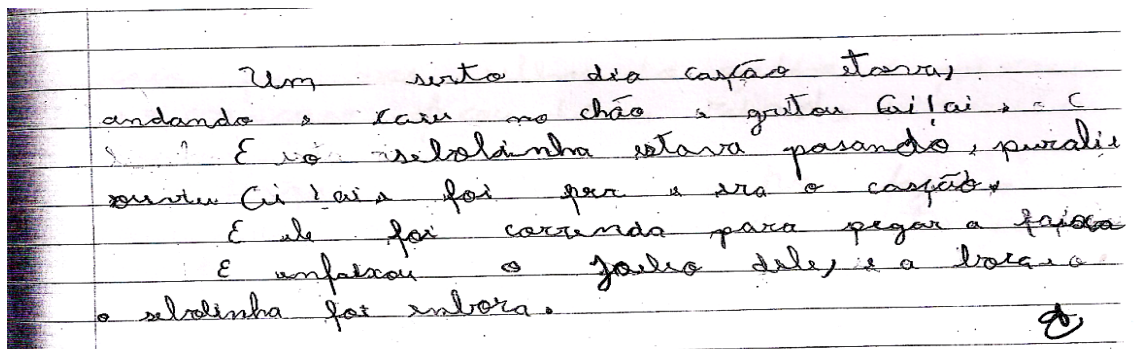 Um serto dia casção etava,
andando e caiu no chão e gritou Cai!ai,
E o sebolinha estava pasando, purali e
ouviu Ci!ai e foi ver e era o casção,
E ele foi correndo para pegar a faixa
E enfaixou o joelho dele, e a boca e o
o sebolinha foi enbora.